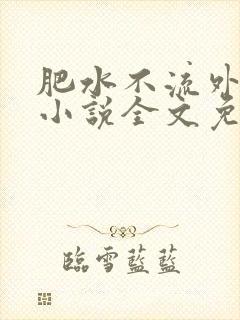 肥水不流外
小說全文免
臨雪藍藍